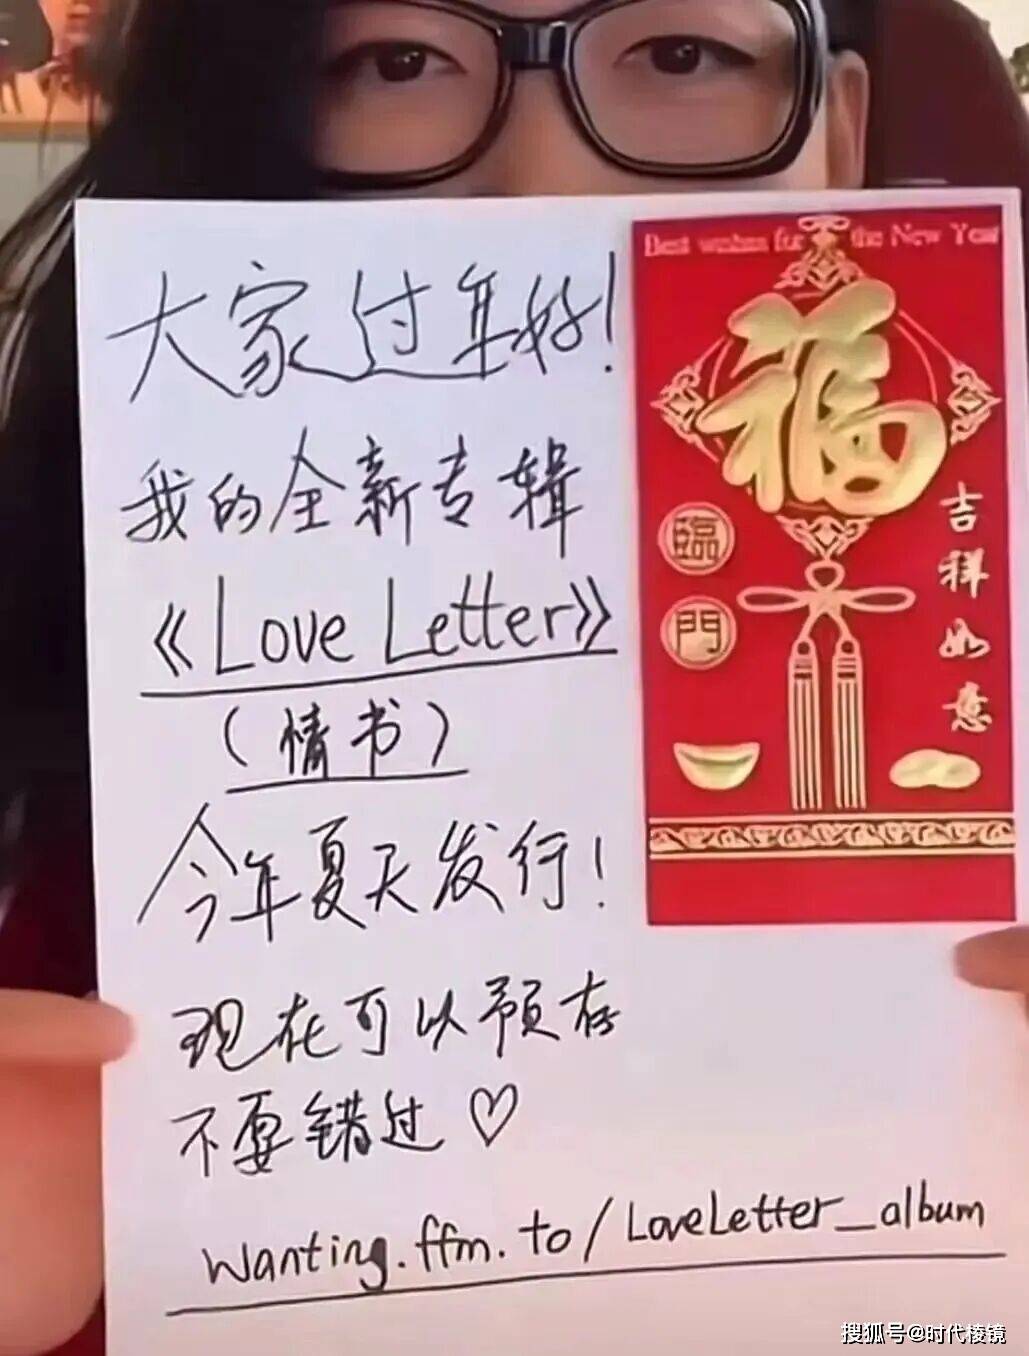 大家过年好!
我的全新专辑
《Love Letter》
(情书)
今年夏天发行!
现在可以预存
不要错过♡
wanting.ffm.to/LoveLetter_album
Best wishes for the New Year
福
臨門
吉祥如意
搜狐号@时代棱镜